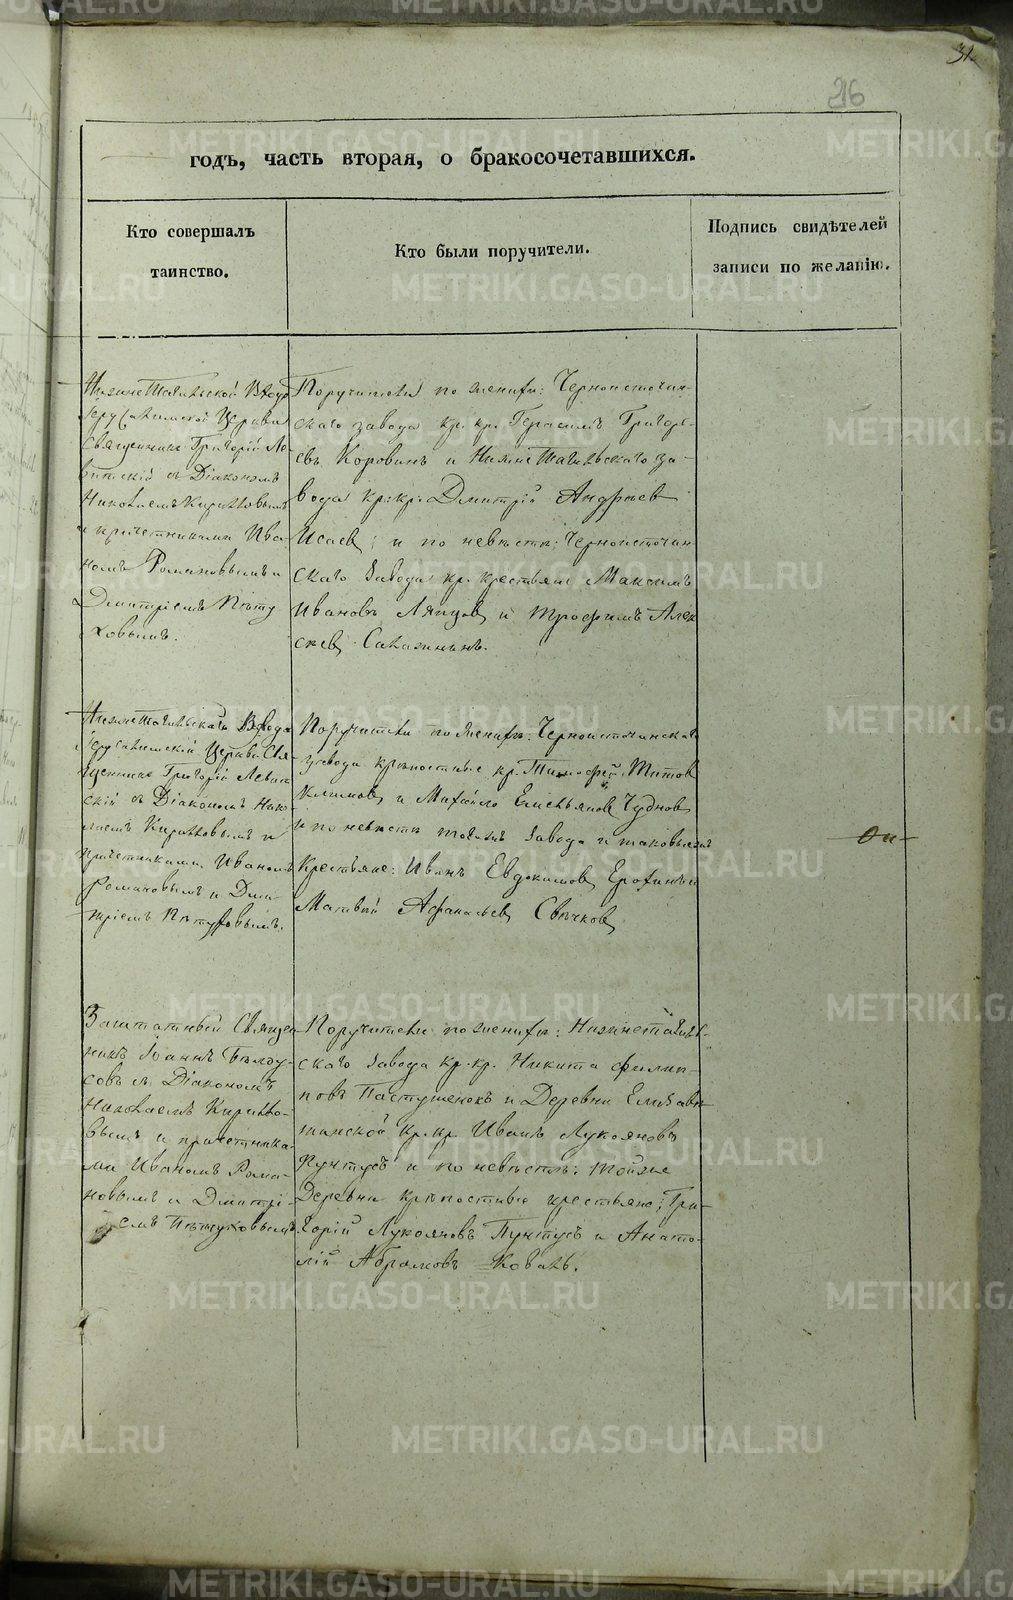 31
216
годъ, часть вторая, о бракосочетавшихся.
Кто совершалъ
таинство.
Кто были поручители.
Подпись свидѣтелей
записи по желанію.
НижнеТагильской Входо
Іерусалимской Церкви
Священникъ Григорій Ле-
витскій съ Діакономъ
Николаемъ Кирилловымъ
и причетниками Ива
номъ Романовымъ и
Дмитріемъ Пѣту
ховымъ.
Поручители по женихѣ: Черноисточин-
скаго завода кр. кр. Герасимъ Григорь-
евъ Коровинъ и НижнеТагильскаго за-
вода кр: кр. Дмитрій Андреев
Исаев; и по невѣстѣ: Черноисточин
скаго Завода кр. крестьяне Максимъ
Ивановъ Ляпцов и Трофимъ Алек
сѣев Салазкинъ.
НижнеТагильскаго Входо
Іерусалимской Церкви Свя-
щенникъ Григорій Левит
скій съ Діакономъ Нико-
лаемъ Кирилловымъ и
причетниками Иваномъ
Романовымъ и Дми-
тріемъ Пѣтуховымъ.
Поручители по женихѣ: Черноисточинскаго
завода крѣпостные кр. Тимофей Титов
Климов и Михайло Емельянов Чуднов
и по невѣстѣ тогожъ Завода и таковыежъ
Крестьяне: Иванъ Евдокимов Ерохинъ и
Матвей Афанасьев Свѣчков
Заштатный Священ
никъ Іоаннъ Бѣлоу-
совъ съ Діакономъ
Николаемъ Кирилло-
вымъ и причетника-
ми Иваномъ Рома-
новымъ и Дмитрі-
емъ Пѣтуховымъ
Поручители по женихѣ: Нижнетагиль-
скаго Завода кр. кр. Никита Филип-
повъ Пастушенокъ и Деревни Елизаве-
тинской кр. кр. Иванъ Лукояновъ
Пунтусъ и по невѣстѣ: тойже
Деревни крѣпостные крестьяне: Гри-
горій Лукояновъ Пунтусъ и Анато-
лій Абрамовъ Коваль.